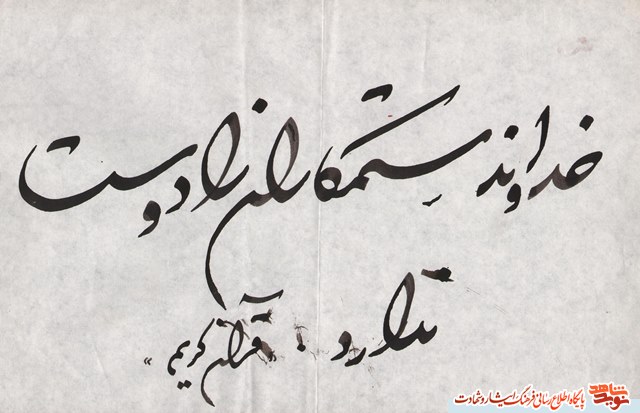 خداوند ستمکاران را دوست
ندارد. «قرآن کریم»
نوید شاهد
پایگاه اطلاع رسانی فرهنگ ایثار و شهادت